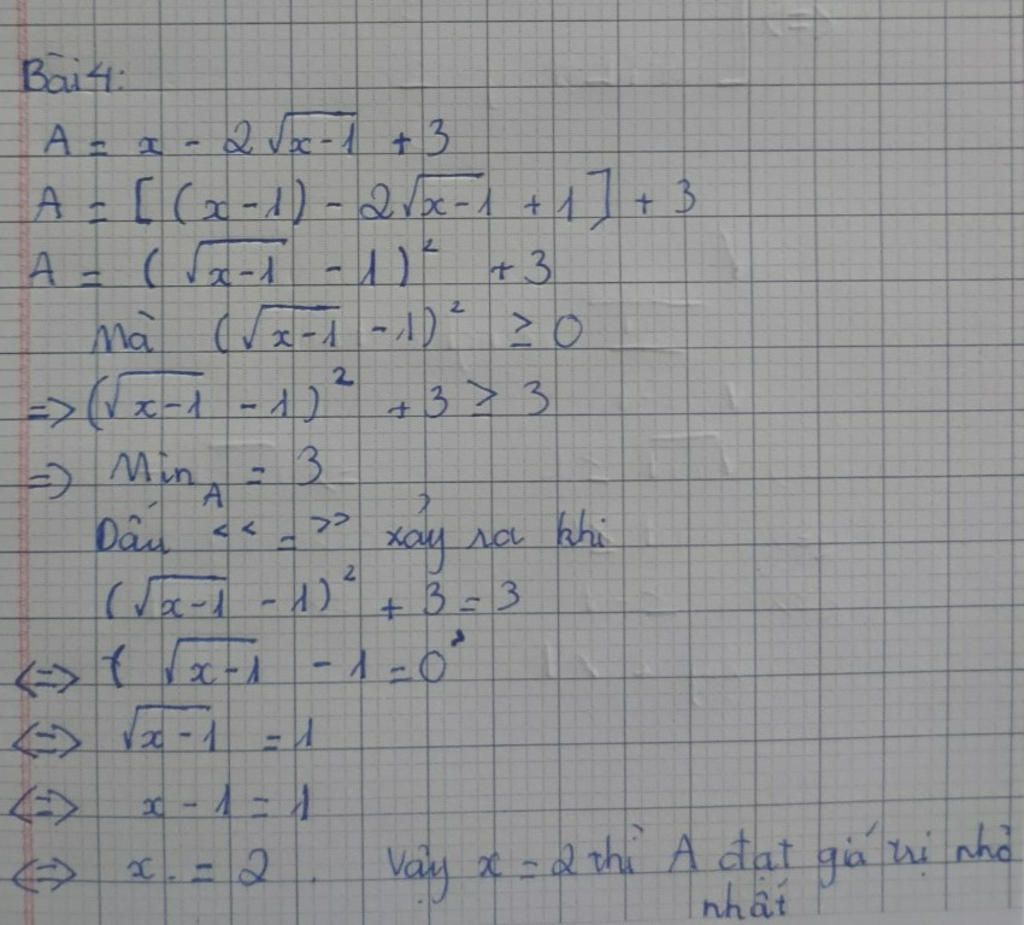 Bài 4:
A = x - 2√(x-1) + 3
A = [(x-1) - 2√(x-1) + 1] + 3
A = (√(x-1) - 1)² + 3
Mà (√(x-1) - 1)² ≥ 0
=> (√(x-1) - 1)² + 3 ≥ 3
=> Min_A = 3
Dấu "=" xảy ra khi
(√(x-1) - 1)² + 3 = 3
<=> √(x-1) - 1 = 0
<=> √(x-1) = 1
<=> x - 1 = 1
<=> x = 2. Vậy x = 2 thì A đạt giá trị nhỏ
nhất